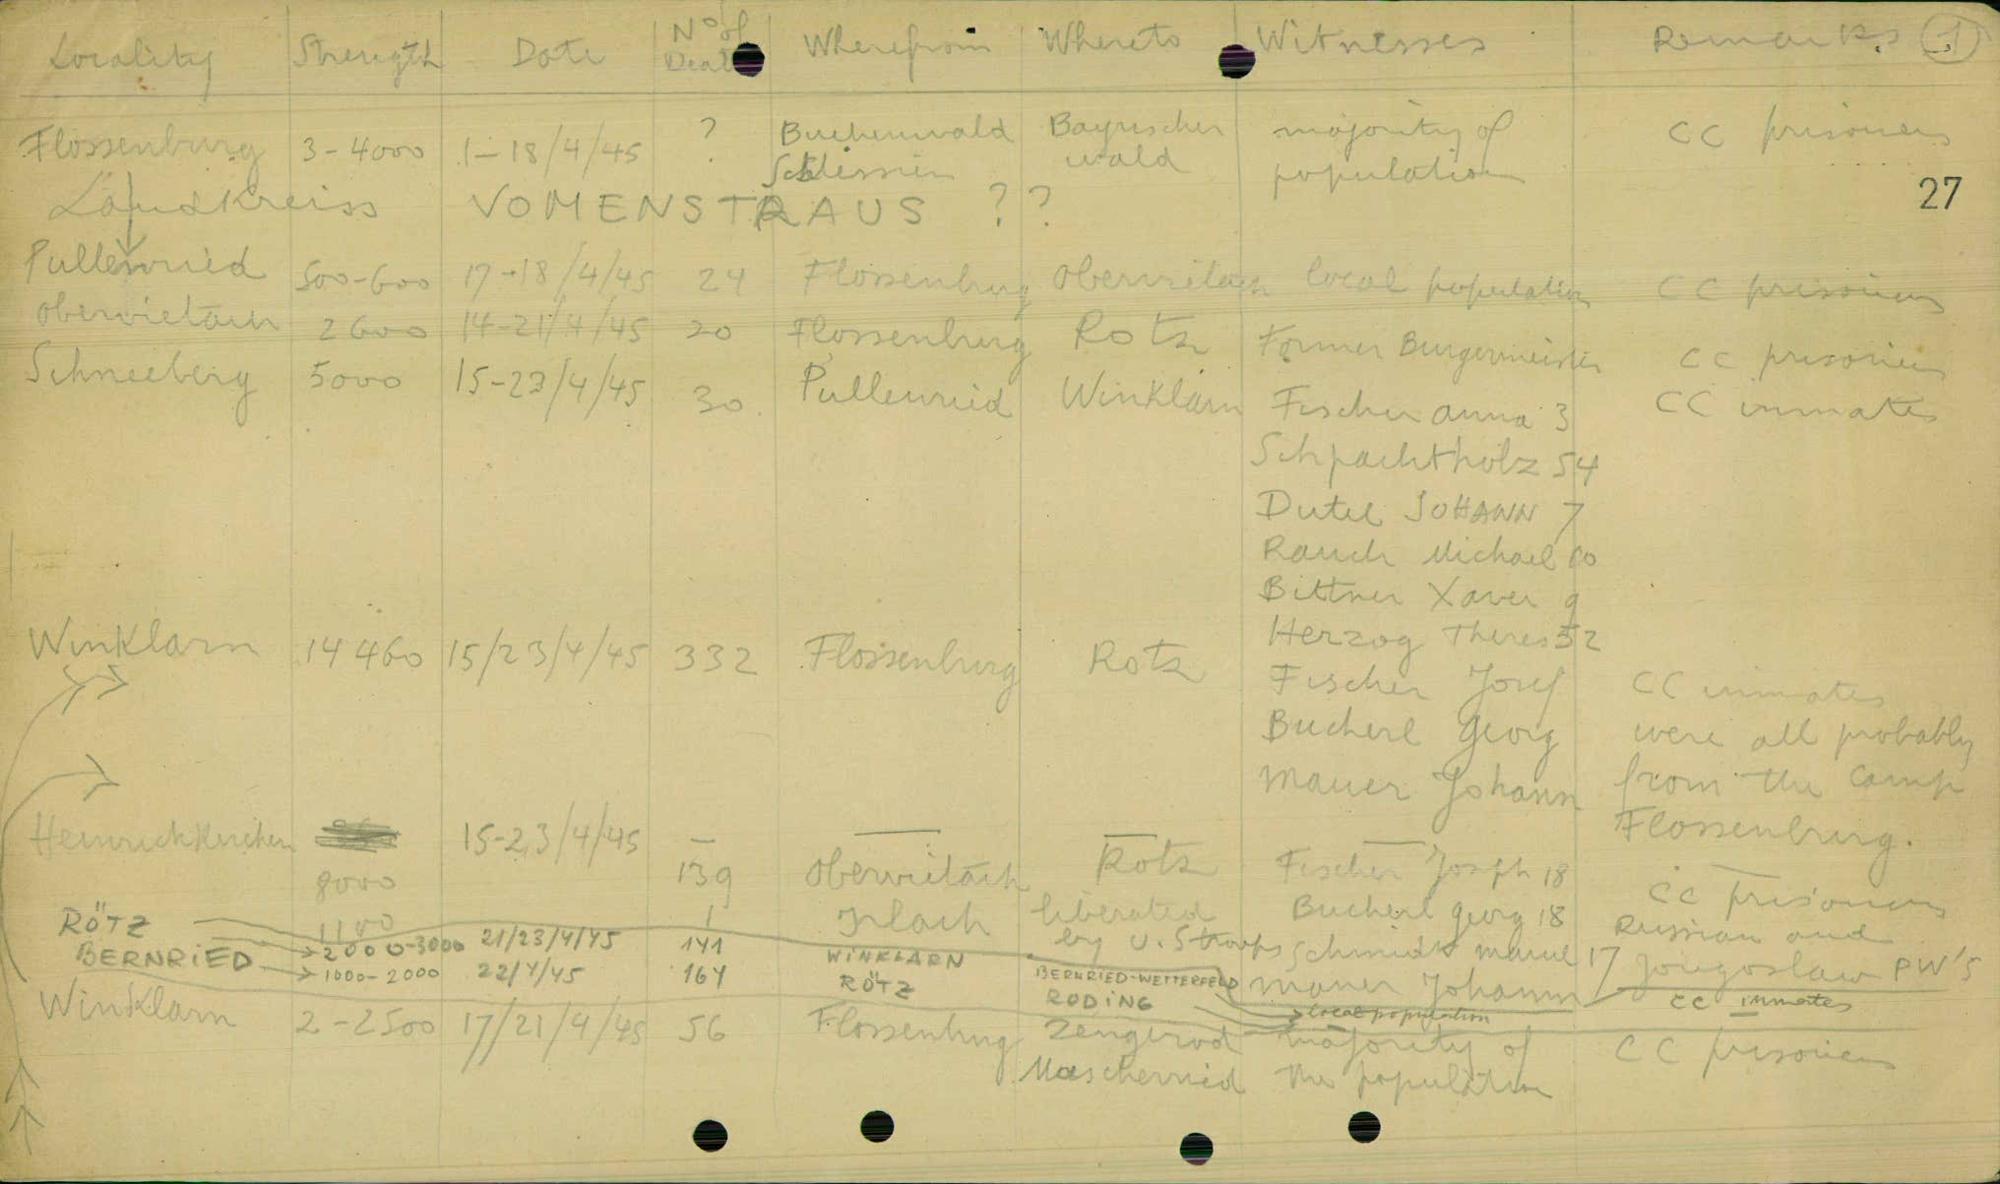 Locality Strength Date No of Dead Wherefrom Whereto Witnesses Remarks 1
Flossenburg 3-4000 1-18/4/45 ? Buchenwald Bayrischer majority of CC prisoners
Schlessien wald population
Landkreiss VOMENSTRAUS ? ?
27
Pullenried 500-600 17-18/4/45 24 Flossenburg Obervietach local population CC prisoners
Obervietach 2600 14-21/4/45 20 Flossenburg Rotz Former Burgermeister CC prisoners
Schneeberg 5000 15-23/4/45 30 Pullenried Winklarn Fischer Anna 3 CC inmates
Schpachtholz 54
Dutel JOHANN 7
Rauch Michael 60
Bittner Xaver 9
Herzog Theres 52
Winklarn 14460 15/23/4/45 332 Flossenburg Rotz Fischer Josef CC inmates
Bucherl Georg were all probably
Mauer Johann from the camp
Flossenburg.
Heinrichkirchen 15-23/4/45 – — — —
8000 139 Obervietach Rotz Fischer Joseph 18 CC prisoners
RÖTZ 1100 1 liberated Bucherl Georg 18 Russian and
by U.S troops Schmidt 17 Jougoslaw PW'S
2000-3000 21/23/4/45 141 WINKLARN BERNRIED-WETTERFELD Mauer Johann
BERNRIED 1000-2000 22/4/45 164 RÖTZ RODING local population CC inmates
Winklarn 2-2500 17/21/4/45 56 Flossenburg Zengerod majority of CC prisoners
Mascherried the population